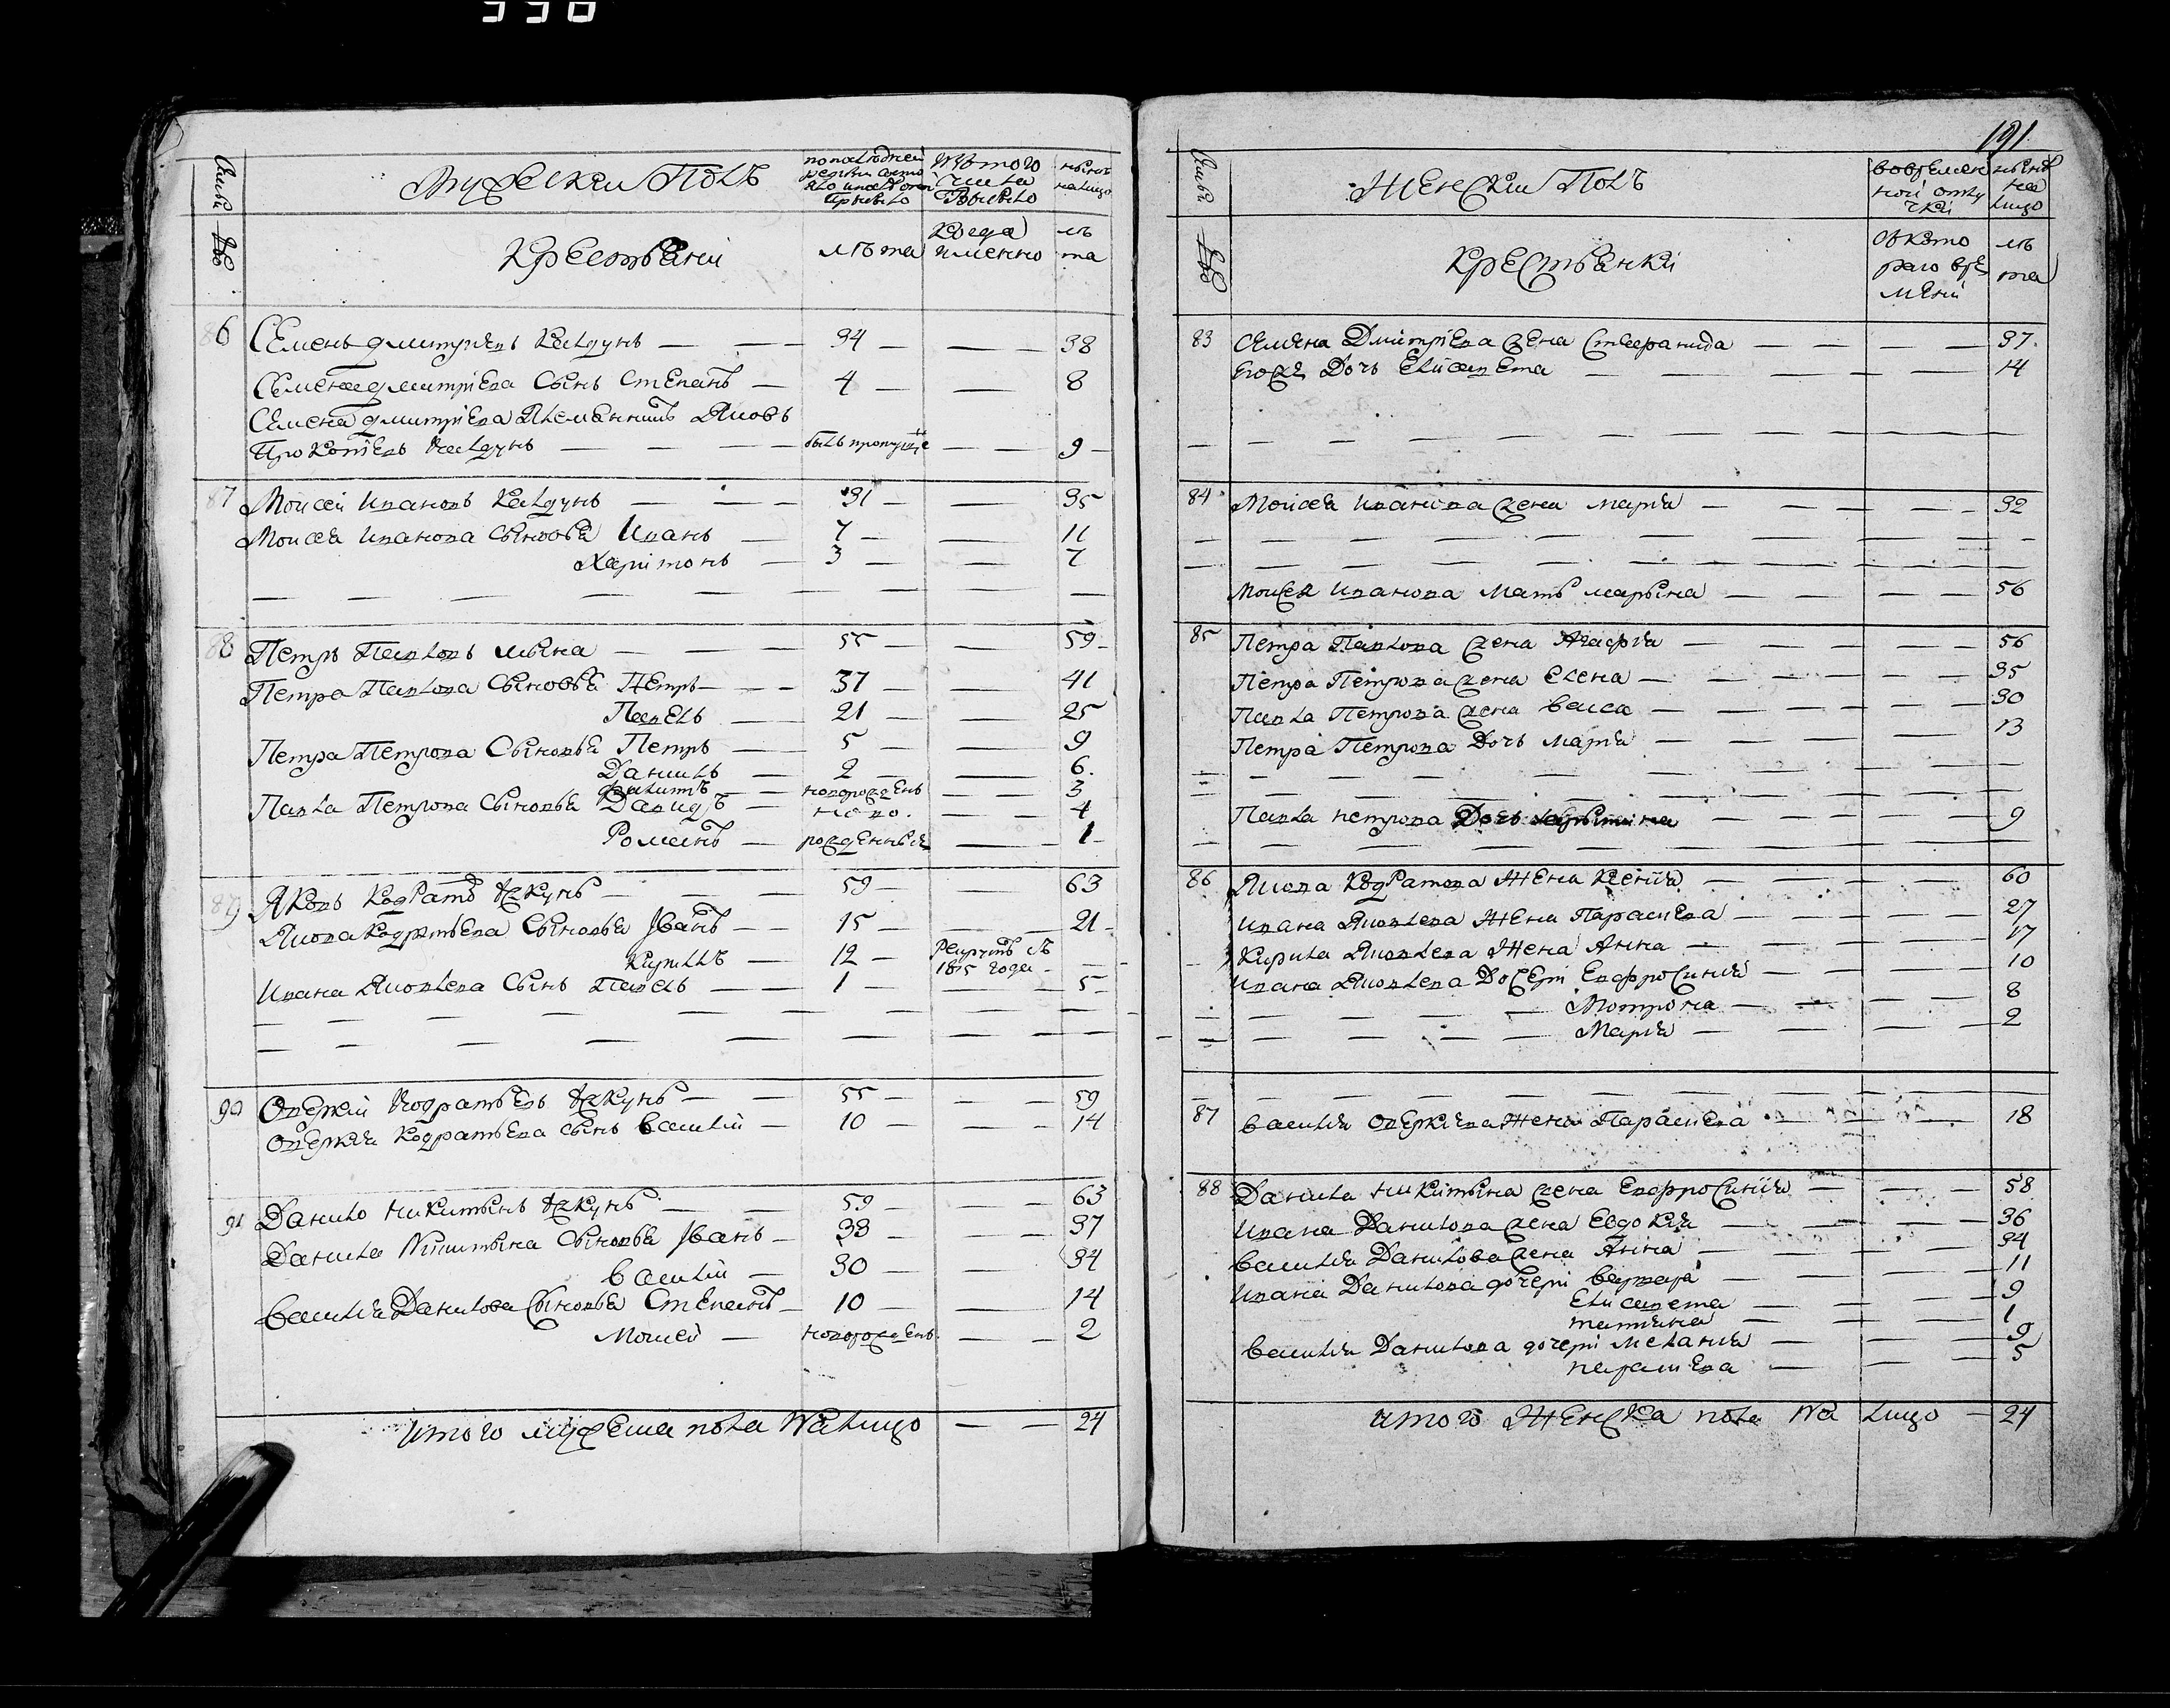 998
Мужескии Полъ
по последней ревизии состояло и после оной прибыло
Изъ того числа выбыло
нынѣ на лицо
Крестьяни
лѣта
Когда именно
лѣта
86 Семенъ дмитриевъ Калдунъ — 34 — 38
Семена дмитріева Сынъ Степанъ — 4 — 8
Семена дмитріева Племянникъ Яковъ
Прокопіевъ Калдунъ — былъ пропущіе — 9
87 Моисей Ивановъ Калдунъ — 31 — 35
Моисея Иванова Сыновья Иванъ — 7 — 11
Харитонъ — 3 — 7
88 Петръ Павловъ — 55 — 59
Петра Павлова Сыновья Петръ — 37 — 41
Павелъ — 21 — 25
Петра Петрова Сыновья Петръ — 5 — 9
Данилъ — 2 — 6
Филипъ — новорожденъ — 3
Павла Петрова Сыновья Давидъ — ново — 4
Романъ — рожденный — 1
89 Яковъ Кодратъ — 59 — 63
Якова Кодратьева Сыновья Іванъ — 15 — 21
Кирилъ — 12 — Рекрутъ съ 1815 года
Ивана Яковлева Сынъ Павелъ — 1 — 5
90 Оверкій Кодратьевъ — 55 — 59
Оверкія Кодратьева сынъ Василій — 10 — 14
91 Данило Никитинъ — 59 — 63
Данила Никитина Сыновья Іванъ — 33 — 37
Василій — 30 — 34
Василія Данилова Сыновья Степанъ — 10 — 14
Моисей — новорожденъ — 2
Итого мужеска пола На Лицо — 24
191
Женскіи Полъ
во временной отлучки
нынѣ на лицо
Крестьянки
Съ которого времени
лѣта
83 Семена Дмитріева жена Стефанида — 37
Егожъ Дочь Елисавета — 14
84 Моисея Иванова жена Марія — 32
Моисея Иванова Мать Марына — 56
85 Петра Павлова жена Агафія — 56
Петра Петрова жена Елена — 35
Павла Петрова жена Васса — 30
Петра Петрова Дочь Марія — 13
Павла петрова Дочь — 9
86 Якова Кодратова Жена Ксенія — 60
Ивана Яковлева Жена Парасцева — 27
Кирила Яковлева Жена Анна — 17
Ивана Яковлева Дочери Евфросинія — 10
Мотрона — 8
Марія — 2
87 Василія Оверкіева Жена Парасцева — 18
88 Данила Никитина жена Евфросинія — 58
Ивана Данилова жена Евдокія — 36
Василія Данилова жена Анна — 34
Ивана Данилова дочери Варвара — 11
Елисавета — 9
татіана — 1
Василія Данилова дочери Меланія — 9
парасцева — 5
Итого Женска пола На Лицо — 24